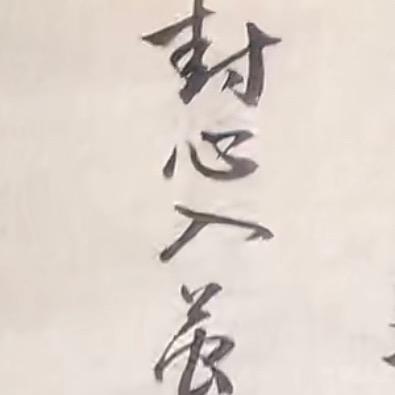 封心入